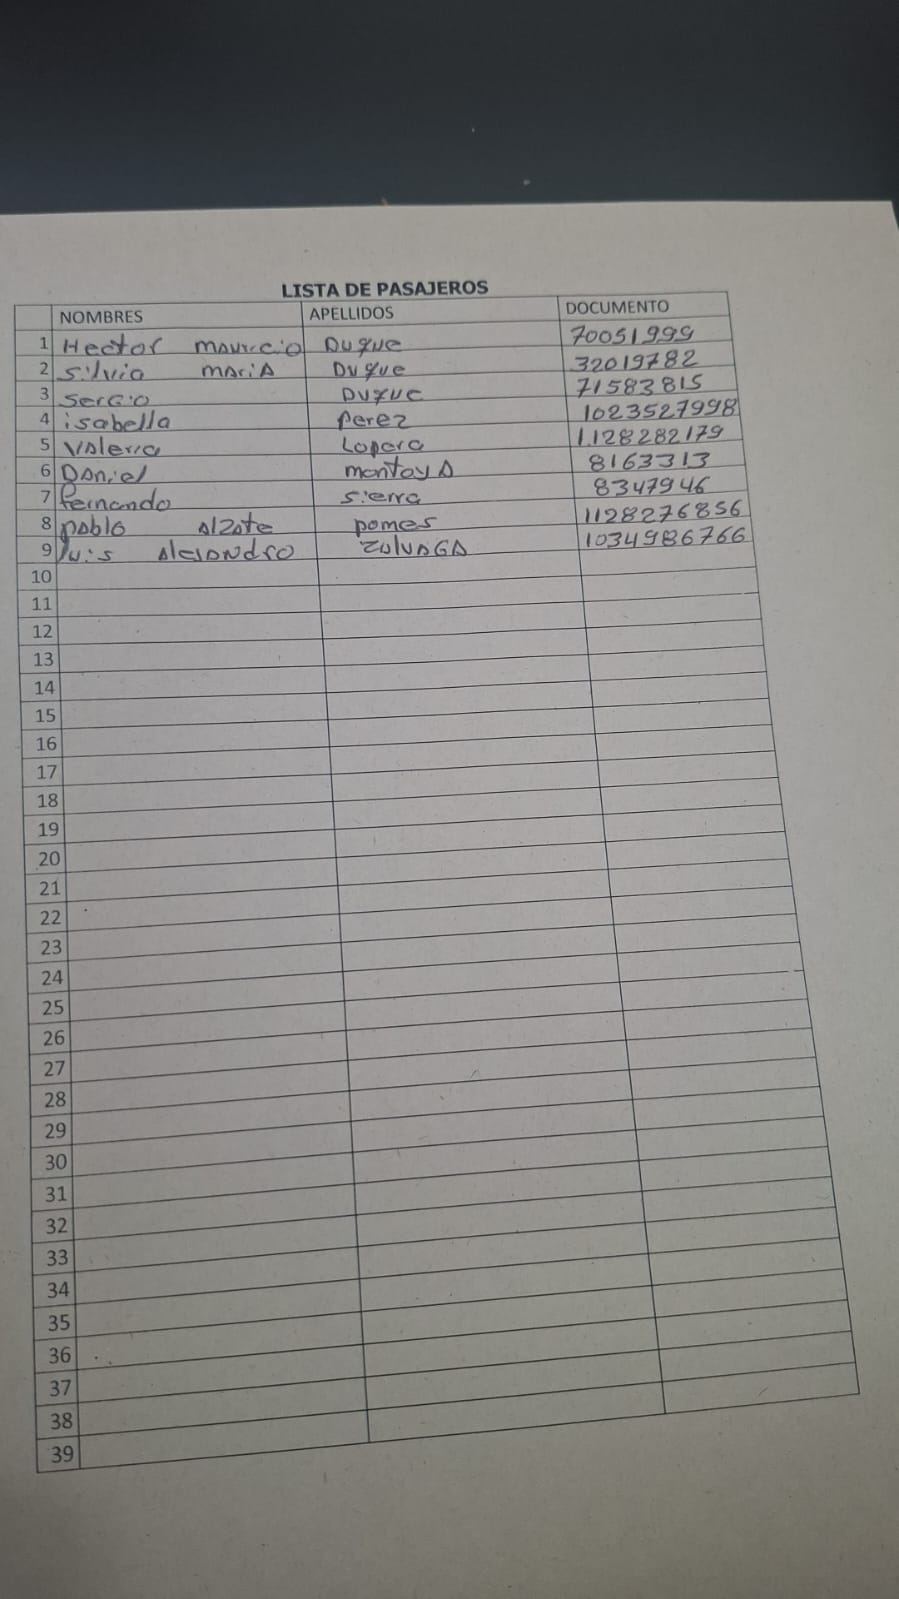 LISTA DE PASAJEROS
NOMBRES APELLIDOS DOCUMENTO
1 Hector mauricio Duque 70051999
2 Silvia MARIA Duque 32019782
3 Sergio Duque 71583815
4 isabella perez 1023527998
5 Valeria Lopera 1.128282179
6 Daniel montoya 8163313
7 fernando sierra 8347946
8 pablo Alzate pomes 1128276856
9 luis Alejandro ZULUAGA 1034986766
10
11
12
13
14
15
16
17
18
19
20
21
22
23
24
25
26
27
28
29
30
31
32
33
34
35
36
37
38
39